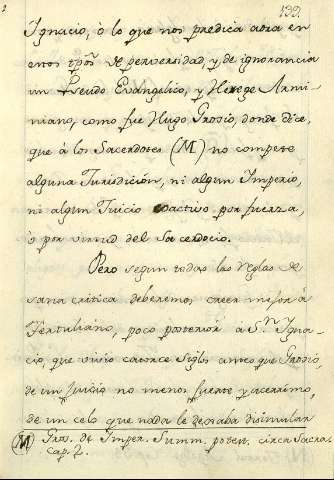 199.
Ignacio, ò lo que nos predica aora en
estos tpõs de perversidad, y de ignorancia
un Pseudo Evangelico, y Herege Armi-
niano, como fue Hugo Grosio, donde dice,
que à los Sacerdotes (M) no compete
alguna Jurisdición, ni algun Imperio,
ni algun Juicio coactivo por fuerza,
ò por virtud del Sacerdocio.
Pero segun todas las Reglas de
sana critica deberemos creer mejor à
Tertuliano, poco posterior à Sⁿ. Igna-
cio, que vivio catorce siglos antes que Grosio,
de un juicio no menos fuerte y acerrimo,
de un celo que nada le dexaba disimular
(M) Gros. de Imper. Summ. potest. circa Sacra
cap. 2.